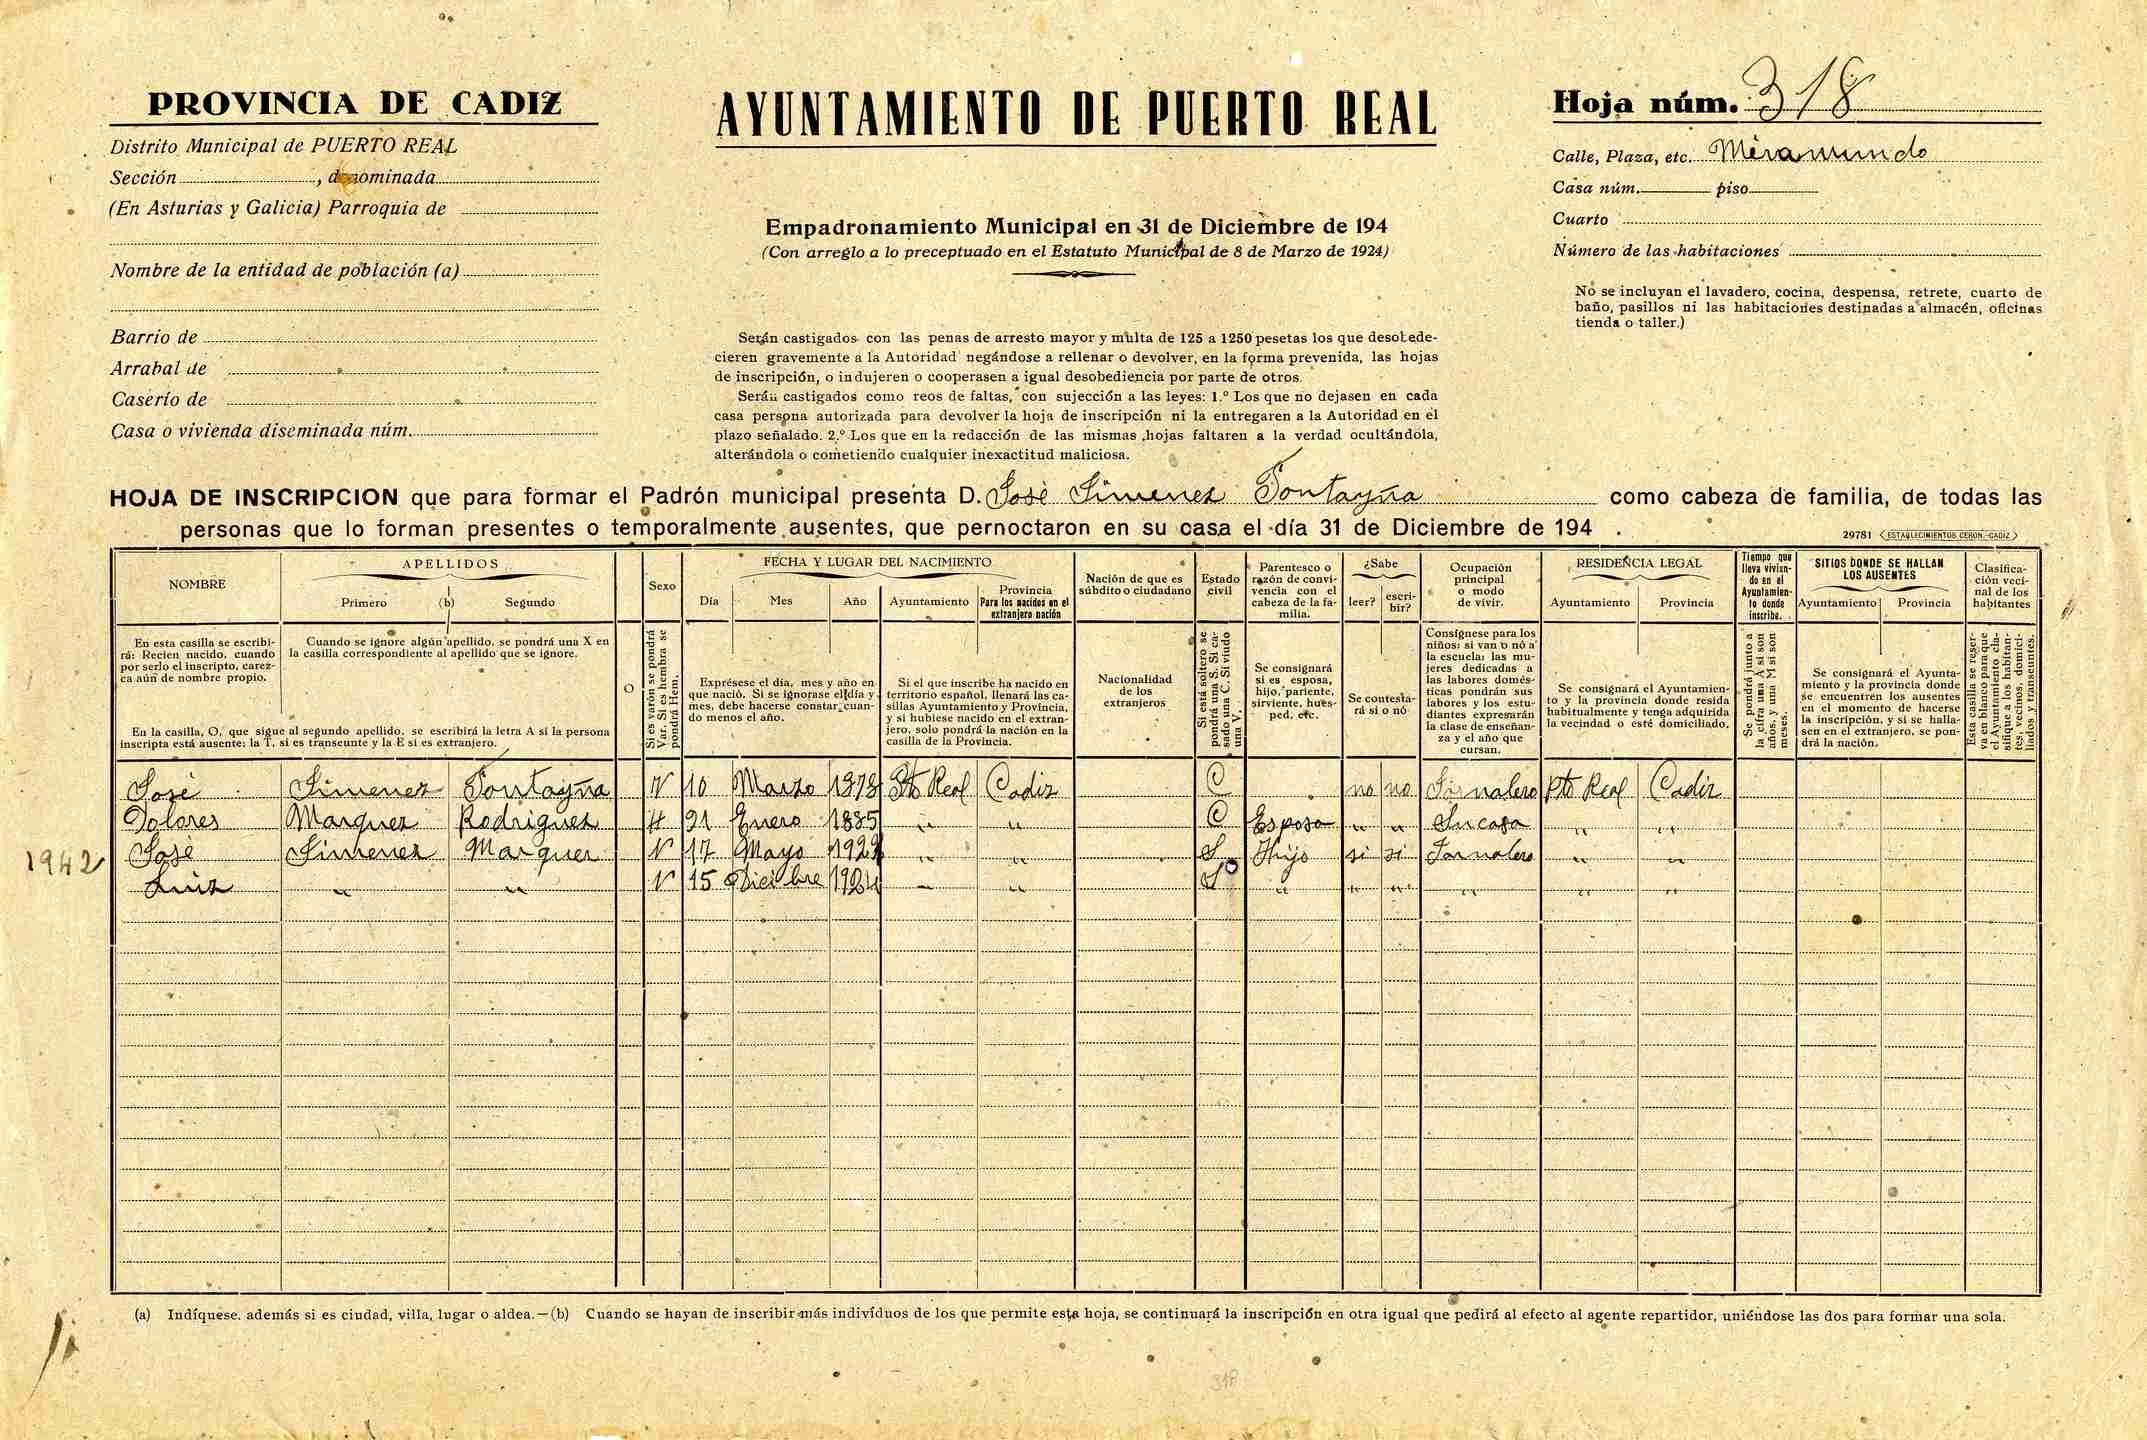 PROVINCIA DE CADIZ
Distrito Municipal de PUERTO REAL
Sección , denominada
(En Asturias y Galicia) Parroquia de
Nombre de la entidad de población (a)
Barrio de
Arrabal de
Caserío de
Casa o vivienda diseminada núm.
AYUNTAMIENTO DE PUERTO REAL
Empadronamiento Municipal en 31 de Diciembre de 194
(Con arreglo a lo preceptuado en el Estatuto Municipal de 8 de Marzo de 1924)
Serán castigados con las penas de arresto mayor y multa de 125 a 1250 pesetas los que desobede-
cieren gravemente a la Autoridad negándose a rellenar o devolver, en la forma prevenida, las hojas
de inscripción, o indujeren o cooperasen a igual desobediencia por parte de otros.
Serán castigados como reos de faltas, con sujección a las leyes: 1.º Los que no dejasen en cada
casa persona autorizada para devolver la hoja de inscripción ni la entregaren a la Autoridad en el
plazo señalado. 2.º Los que en la redacción de las mismas hojas faltaren a la verdad ocultándola,
alterándola o cometiendo cualquier inexactitud maliciosa.
Hoja núm. 318
Calle, Plaza, etc. Miramundo
Casa núm. piso
Cuarto
Número de las habitaciones
No se incluyan el lavadero, cocina, despensa, retrete, cuarto de
baño, pasillos ni las habitaciones destinadas a almacén, oficinas
tienda o taller.)
HOJA DE INSCRIPCION que para formar el Padrón municipal presenta D. José Jimenez Fontayña como cabeza de familia, de todas las
personas que lo forman presentes o temporalmente ausentes, que pernoctaron en su casa el día 31 de Diciembre de 194 .
29781 ESTABLECIMIENTOS CERON.-CADIZ
NOMBRE
APELLIDOS
Primero (b) Segundo
O
Sexo
FECHA Y LUGAR DEL NACIMIENTO
Día Mes Año Ayuntamiento
Provincia
Para los nacidos en el
extranjero nación
Nación de que es
súbdito o ciudadano
Estado
civil
Parentesco o
razón de convi-
vencia con el
cabeza de la fa-
milia.
¿Sabe
leer? escri-
bir?
Ocupación
principal
o modo
de vivir.
RESIDENCIA LEGAL
Ayuntamiento Provincia
Tiempo que
lleva vivien-
do en el
Ayuntamien-
to donde
inscribe.
SITIOS DONDE SE HALLAN
LOS AUSENTES
Ayuntamiento Provincia
Clasifica-
ción veci-
nal de los
habitantes
En esta casilla se escribi-
rá: Recien nacido, cuando
por serlo el inscripto, carez-
ca aún de nombre propio.
Cuando se ignore algún apellido, se pondrá una X en
la casilla correspondiente al apellido que se ignore.
En la casilla, O, que sigue al segundo apellido, se escribirá la letra A si la persona
inscripta está ausente: la T, si es transeunte y la E si es extranjero.
Si es varón se pondrá
Var. Si es hembra se
pondrá Hem.
Exprésese el día, mes y año en
que nació. Si se ignorase el día y
mes, debe hacerse constar cuan-
do menos el año.
Si el que inscribe ha nacido en
territorio español, llenará las ca-
sillas Ayuntamiento y Provincia,
y si hubiese nacido en el extran-
jero, solo pondrá la nación en la
casilla de la Provincia.
Nacionalidad
de los
extranjeros
Si está soltero se
pondrá una S. Si ca-
sado una C. Si viudo
una V.
Se consignará
si es esposa,
hijo, pariente,
sirviente, hués-
ped, etc.
Se contesta-
rá si o nó
Consígnese para los
niños: si van o nó a
la escuela: las mu-
jeres dedicadas a
las labores domés-
ticas pondrán sus
labores y los estu-
diantes expresarán
la clase de enseñan-
za y el año que
cursan.
Se consignará el Ayuntamien-
to y la provincia donde resida
habitualmente y tenga adquirida
la vecindad o esté domiciliado.
Se pondrá junto a
la cifra una A si son
años, y una M si son
meses.
Se consignará el Ayunta-
miento y la provincia donde
se encuentren los ausentes
en el momento de hacerse
la inscripción, y si se halla-
sen en el extranjero, se pon-
drá la nación.
Esta casilla se reser-
va en blanco para que
el Ayuntamiento cla-
sifique a los habitan-
tes, vecinos, domici-
liados y transeuntes.
José Jimenez Fontayña V 10 Marzo 1878 Pto Real Cadiz C no no Jornalero Pto Real Cadiz
Dolores Marquez Rodriguez H 21 Enero 1885 " " C Esposa " " Su casa " "
1942 José Jimenez Marquez V 17 Mayo S Hijo si si Jornalero " "
Luiz " " V 15 Diciembre 1924 " " S " " " " " "
(a) Indíquese. además si es ciudad, villa, lugar o aldea.—(b) Cuando se hayan de inscribir más indivíduos de los que permite esta hoja, se continuará la inscripción en otra igual que pedirá al efecto al agente repartidor, uniéndose las dos para formar una sola.
318